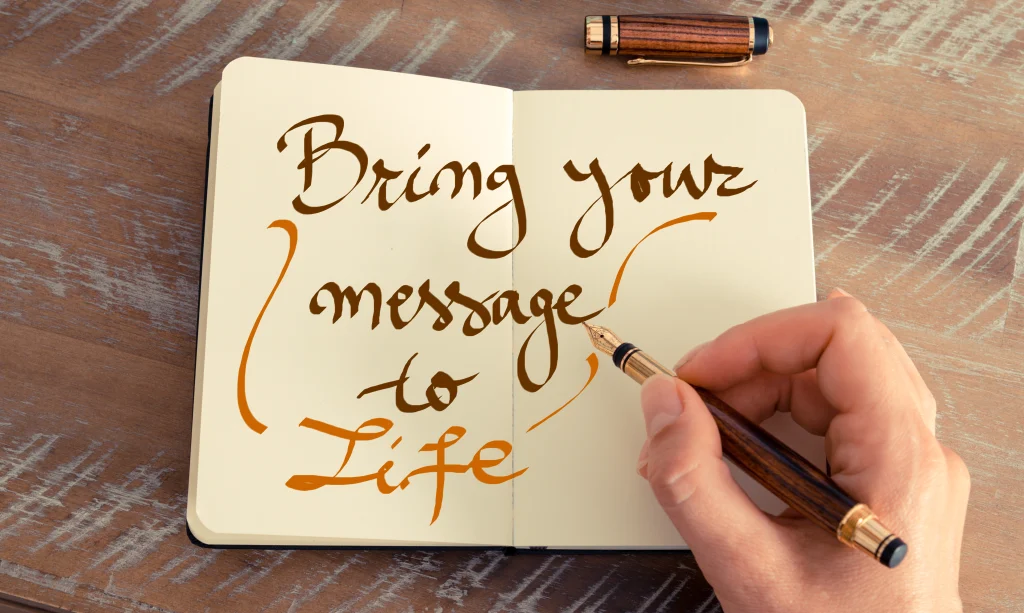 Bring your
message
to
Life